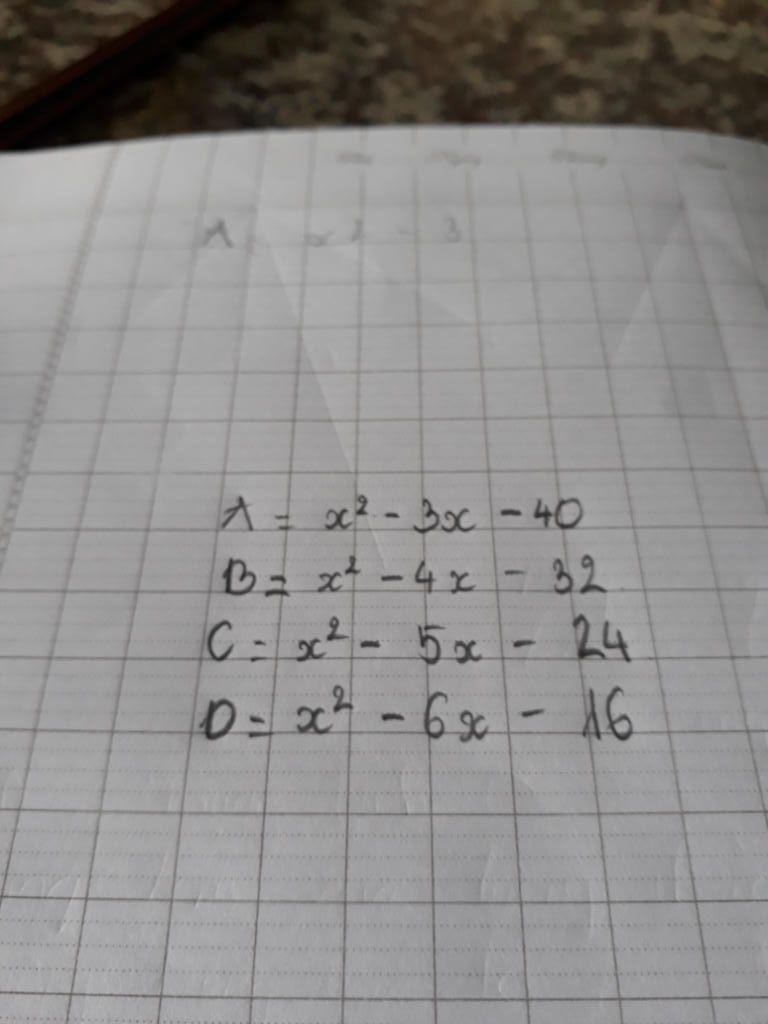 A = x² - 3x - 40
B = x² - 4x - 32
C = x² - 5x - 24
D = x² - 6x - 16